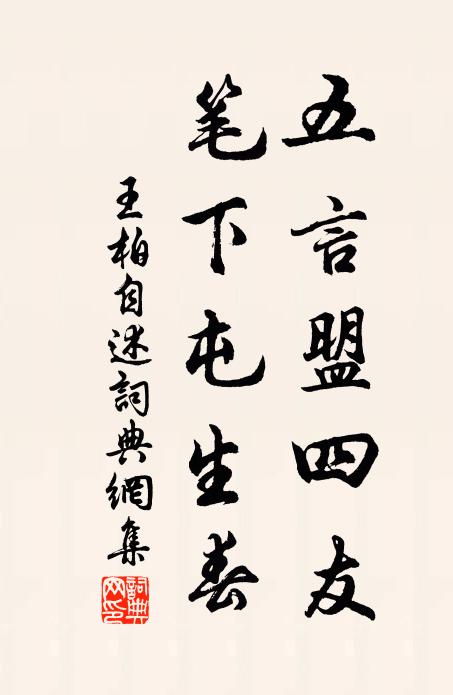 五言盟四友
笔下屯生春
王柏自述詞典網集
詞典网印